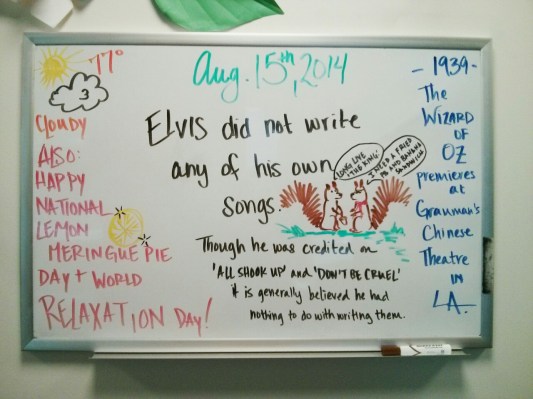 77°
3
CLOUDY
ALSO:
HAPPY
NATIONAL
LEMON
MERINGUE PIE
DAY + WORLD
RELAXATION DAY!
Aug. 15th, 2014
ELVIS did not write
any of his own
songs.
LONG LIVE
'THE KING'
I NEED A FRIED
PB AND BANANA
SANDWICH
Though he was credited on
'ALL SHOOK UP' and 'DON'T BE CRUEL'
it is generally believed he had
nothing to do with writing them.
- 1939 -
The
WIZARD
OF
OZ
premieres
at
Grauman's
Chinese
Theatre
IN
L.A.